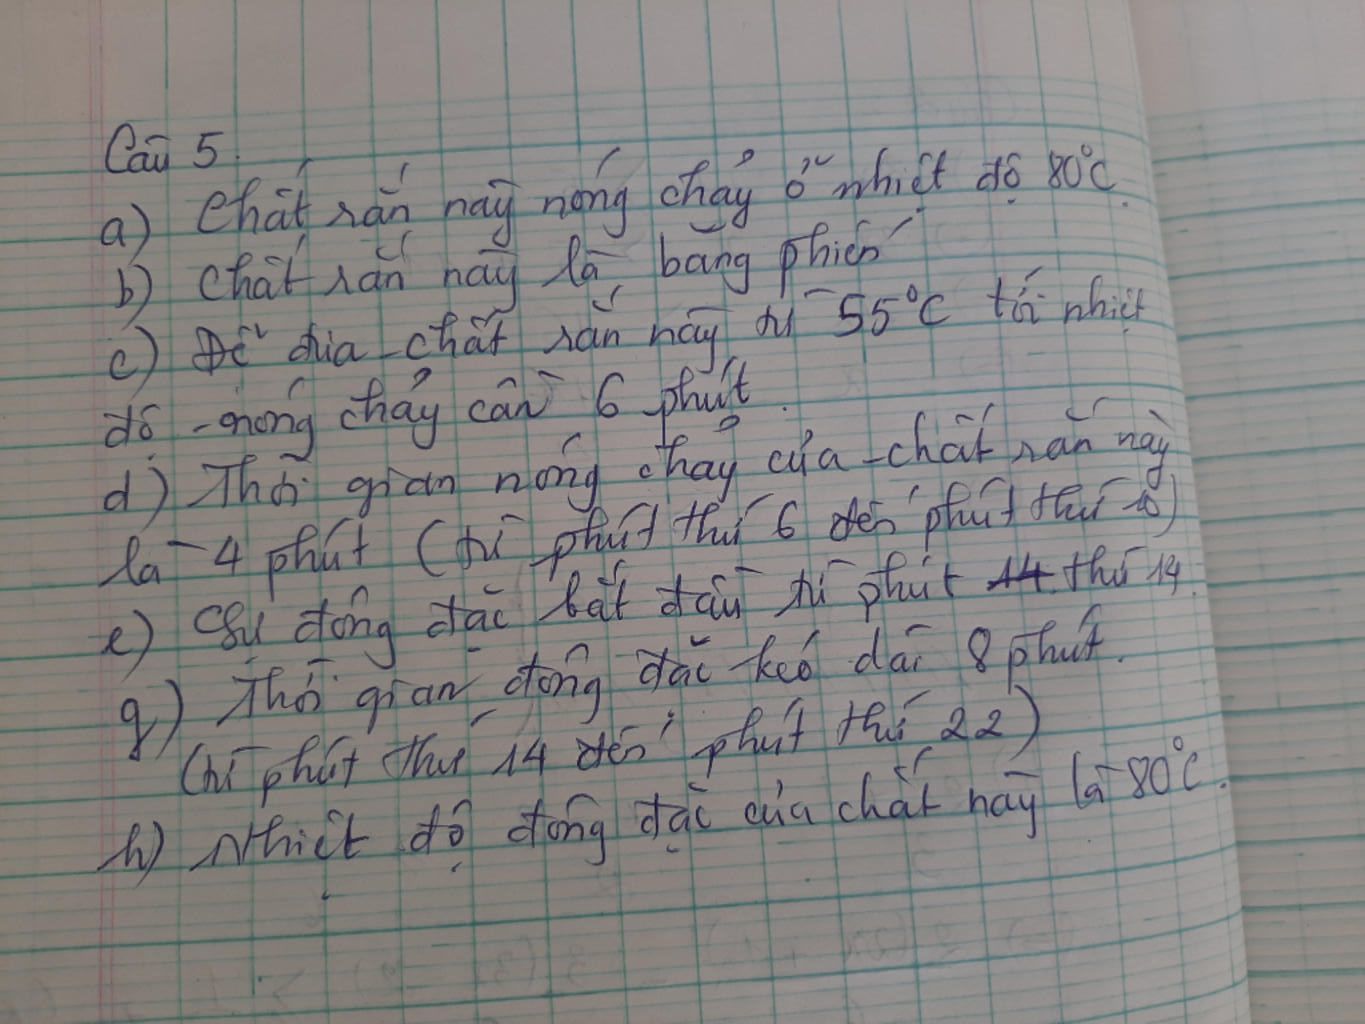 Câu 5.
a) Chất rắn này nóng chảy ở nhiệt độ 80°C.
b) Chất rắn này là băng phiến
c) Để đưa chất rắn này từ 55°C tới nhiệt
độ nóng chảy cần 6 phút.
d) Thời gian nóng chảy của chất rắn này
là 4 phút (từ phút thứ 6 đến phút thứ 10)
e) Sự đông đặc bắt đầu từ phút thứ 14.
g) Thời gian đông đặc kéo dài 8 phút.
(từ phút thứ 14 đến phút thứ 22)
h) Nhiệt độ đông đặc của chất này là 80°C.